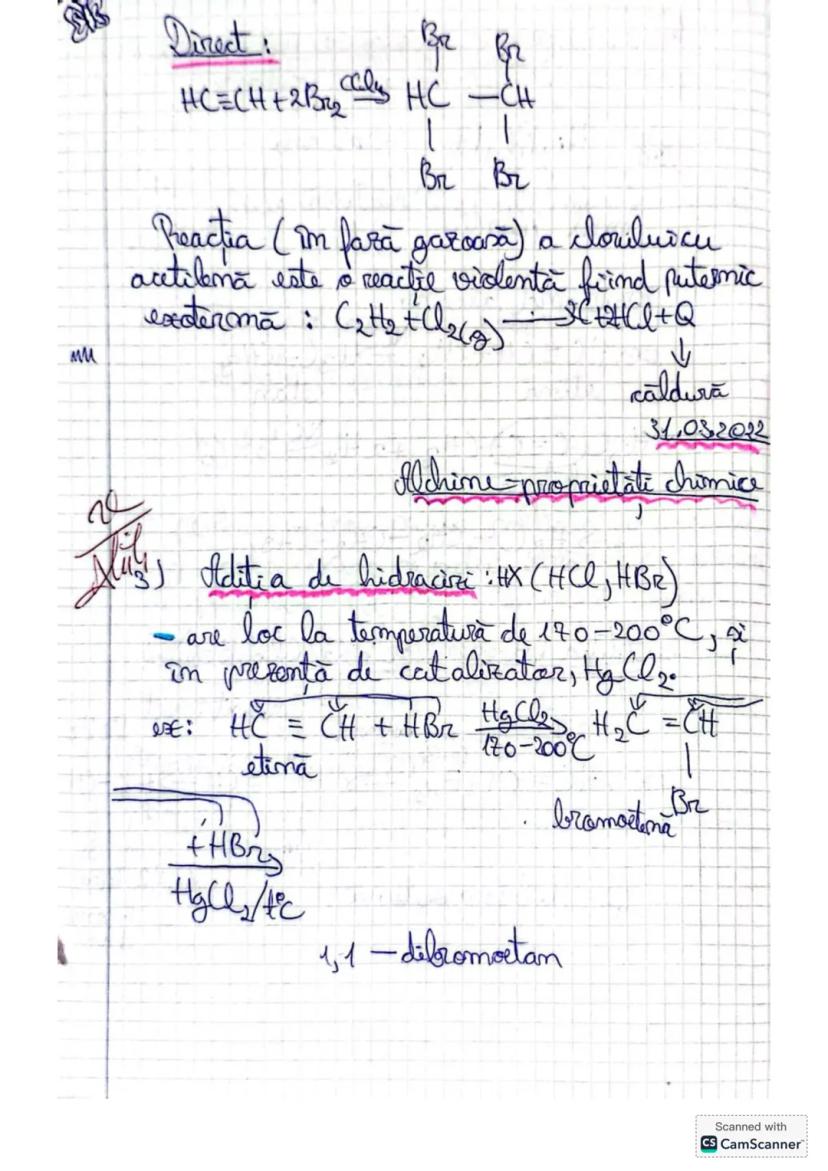 Direct:
Br Br
HC≡CH+2Br₂ CCl₄→ HC —CH
| |
Br Br
Reacția (în fază gazoasă) a clorului cu
acetilenă este o reacție violentă fiind puternic
exotermă : C₂H₂+Cl₂(g) → 2C+2HCl+Q
↓
căldură
31.03.2022
Alchine-proprietăți chimice
3) Adiția de hidracizi :HX (HCl, HBr)
- are loc la temperatură de 170-200°C, și
în prezență de catalizator, HgCl₂.
ex: HC ≡ CH + HBr HgCl₂→ H₂C = CH
170-200°C |
etină
Br
bromoetenă
+HBr→
HgCl₂/t°C
1,1 — dibromoetan
Scanned with
CS CamScanner